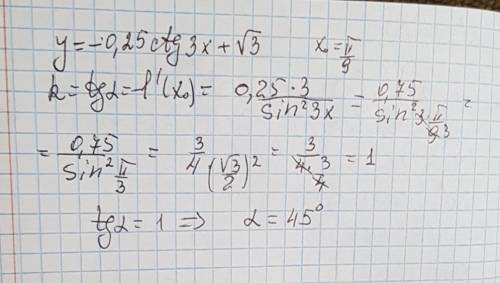 y = -0,25 ctg 3x + √3    x₀ = π/9
k = tgα = f'(x₀) = 0,25·3 / sin²3x = 0,75 / sin²3·π/9 3 =
= 0,75 / sin² π/3 = 3 / 4(√3/2)² = 3 / 4·3/4 = 1
tgα = 1 ⇒ α = 45°